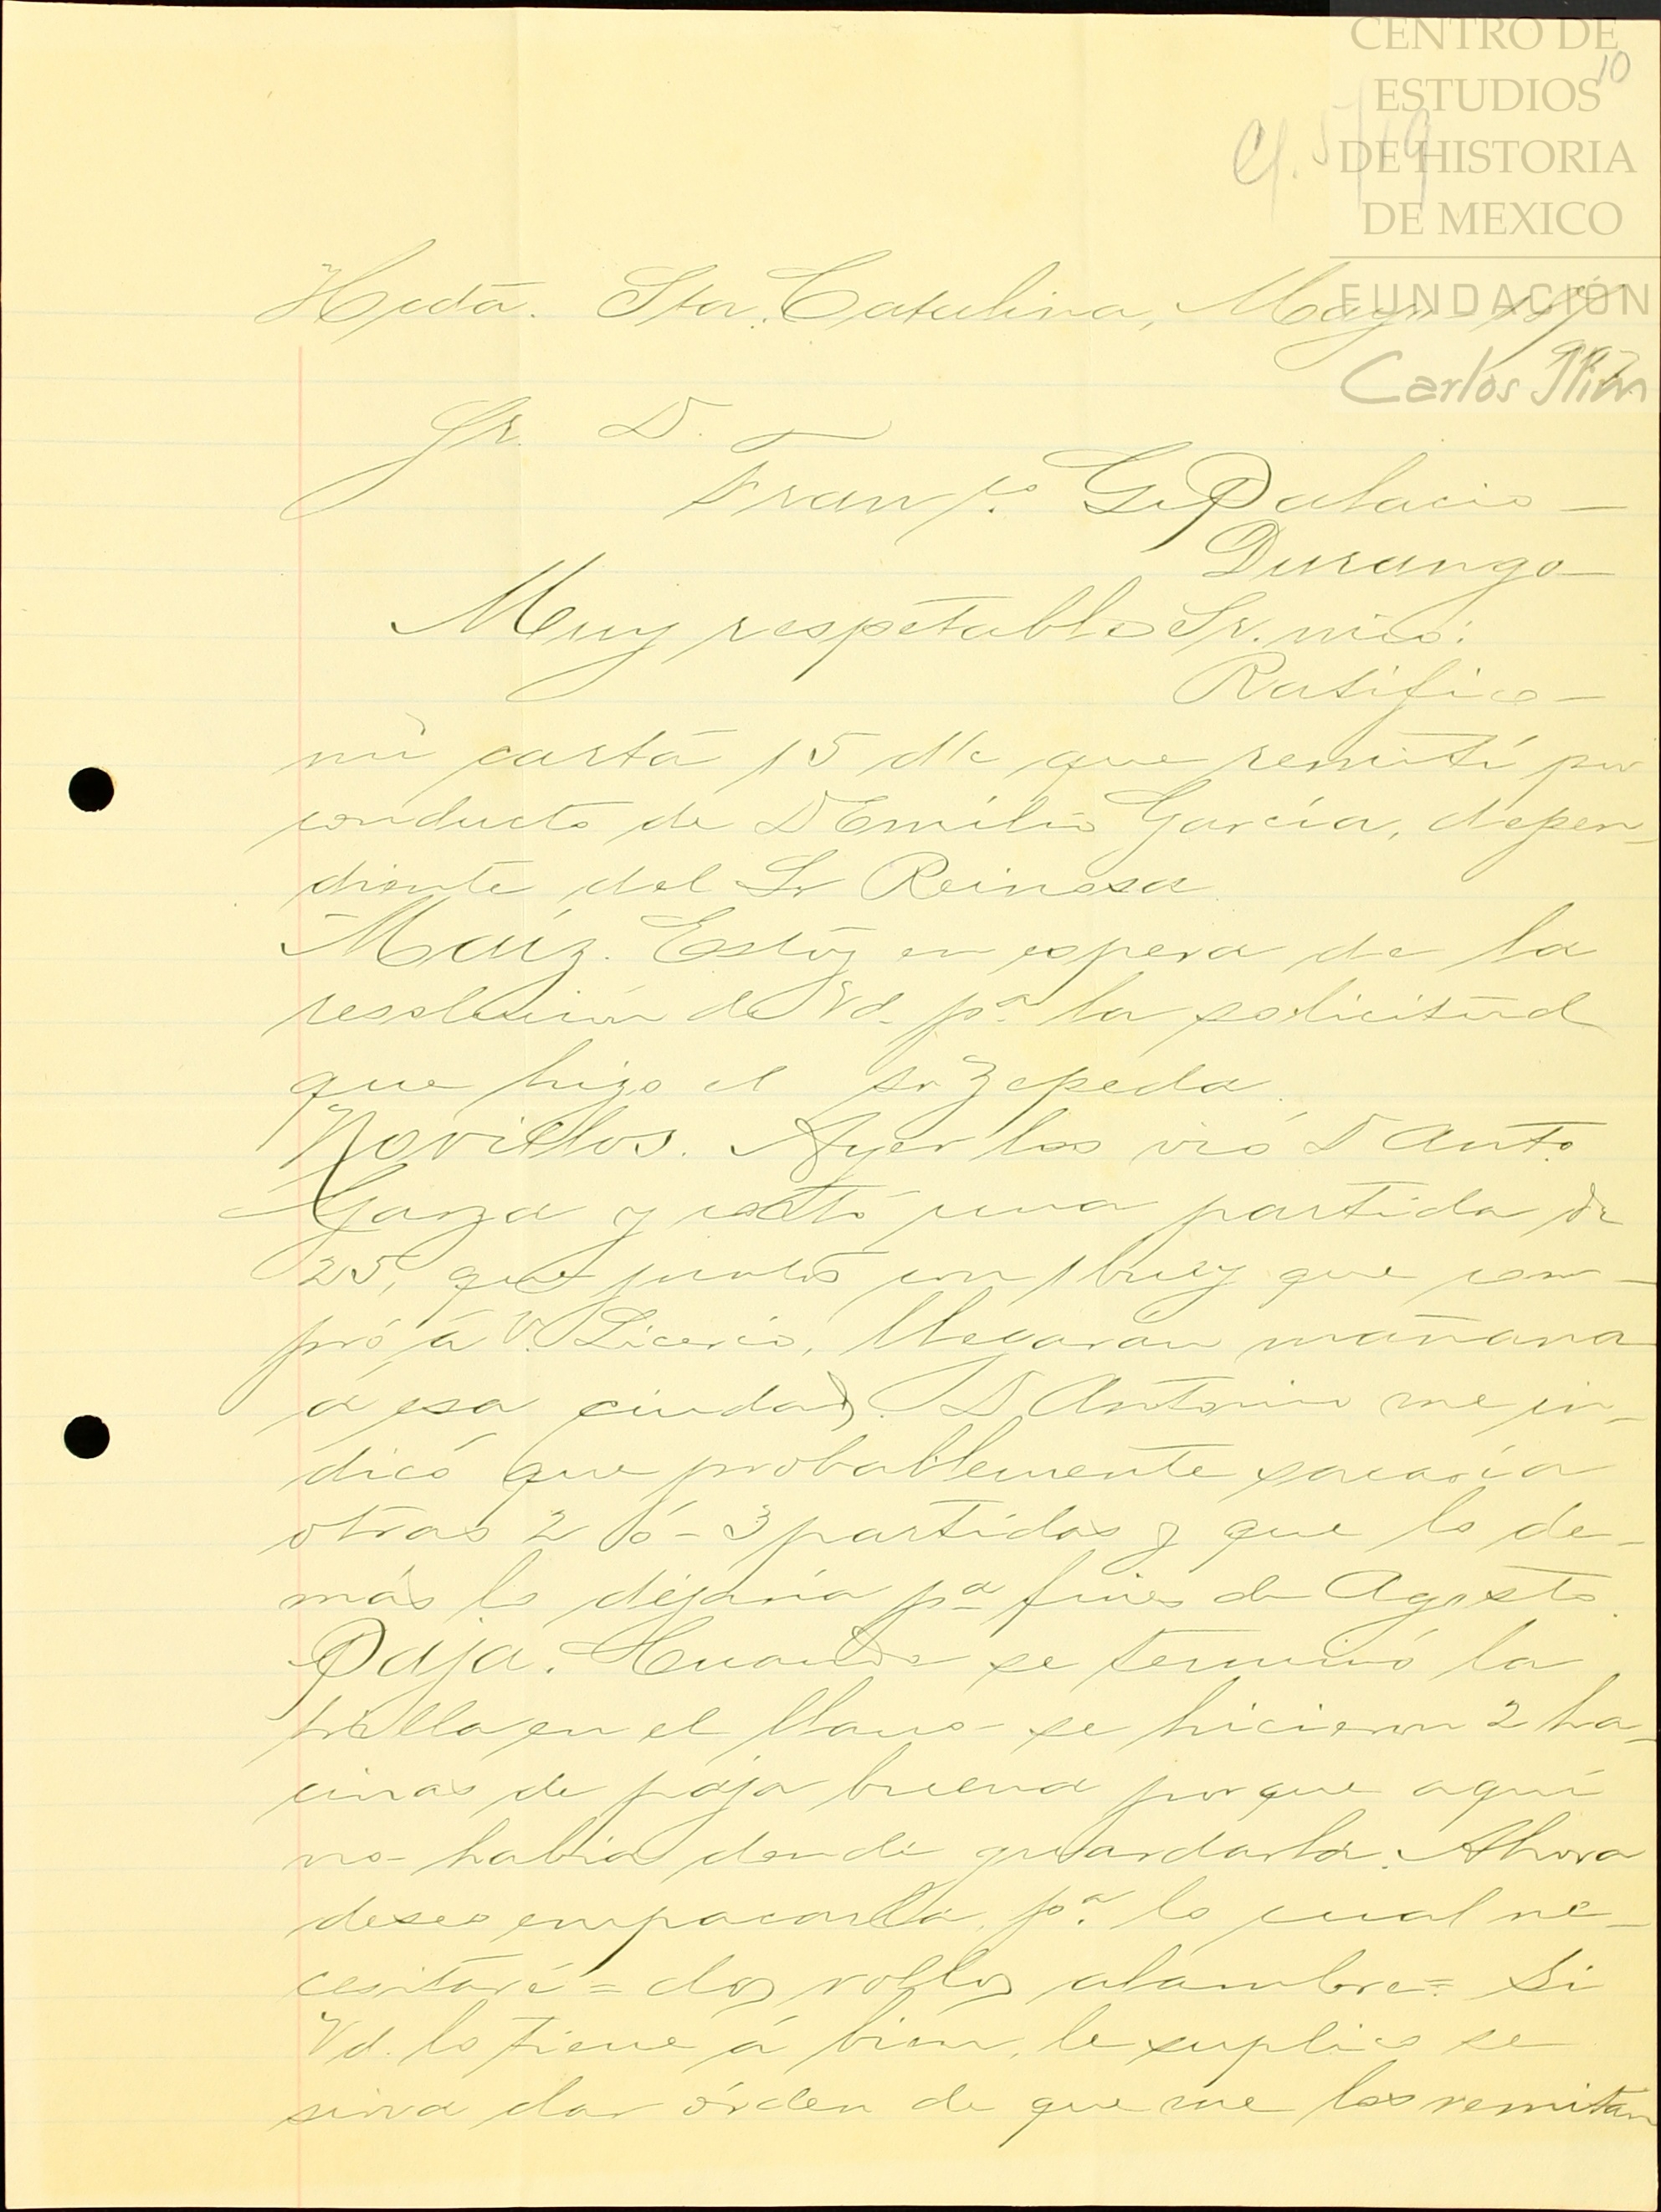 CENTRO DE
10
ESTUDIOS
DE HISTORIA
DE MEXICO
FUNDACIÓN
Carlos Slim
Hcda. Sta. Catalina, Mayo
Sr. D.
Franco. G. Palacio—
Durango—
Muy respetable Sr. mio:
Ratifico—
mi carta 15 d/c que remití por
conducto de D Emilio Garcia, depen-
diente del Sr Reinosa.
Maíz. Estoy en espera de la
resolución de Vd. pa. la solicitud
que hizo el Sr Zepeda.
Novillos. Ayer los vió D Anto.
Garza y una partida de
25, que juntos con 1 buey que com-
pró á D. Licerio, llegarán mañana
á esa ciudad. D Antonio me in-
dicó que probablemente sacaría
otras 2 ó- 3 partidas y que lo de-
más lo dejaría pa fines de Agosto.
Paja. Cuando se terminó la
trilla en el llano- se hicieron 2 ha-
cinas de paja buena porque aquí
no- había donde guardarla. Ahora
deseo empacarla, pa. lo cual ne-
cesitaré = dos rollos alambre =. Si
Vd. lo tiene á bien, le suplico se
sirva dar órden de que me los remitan